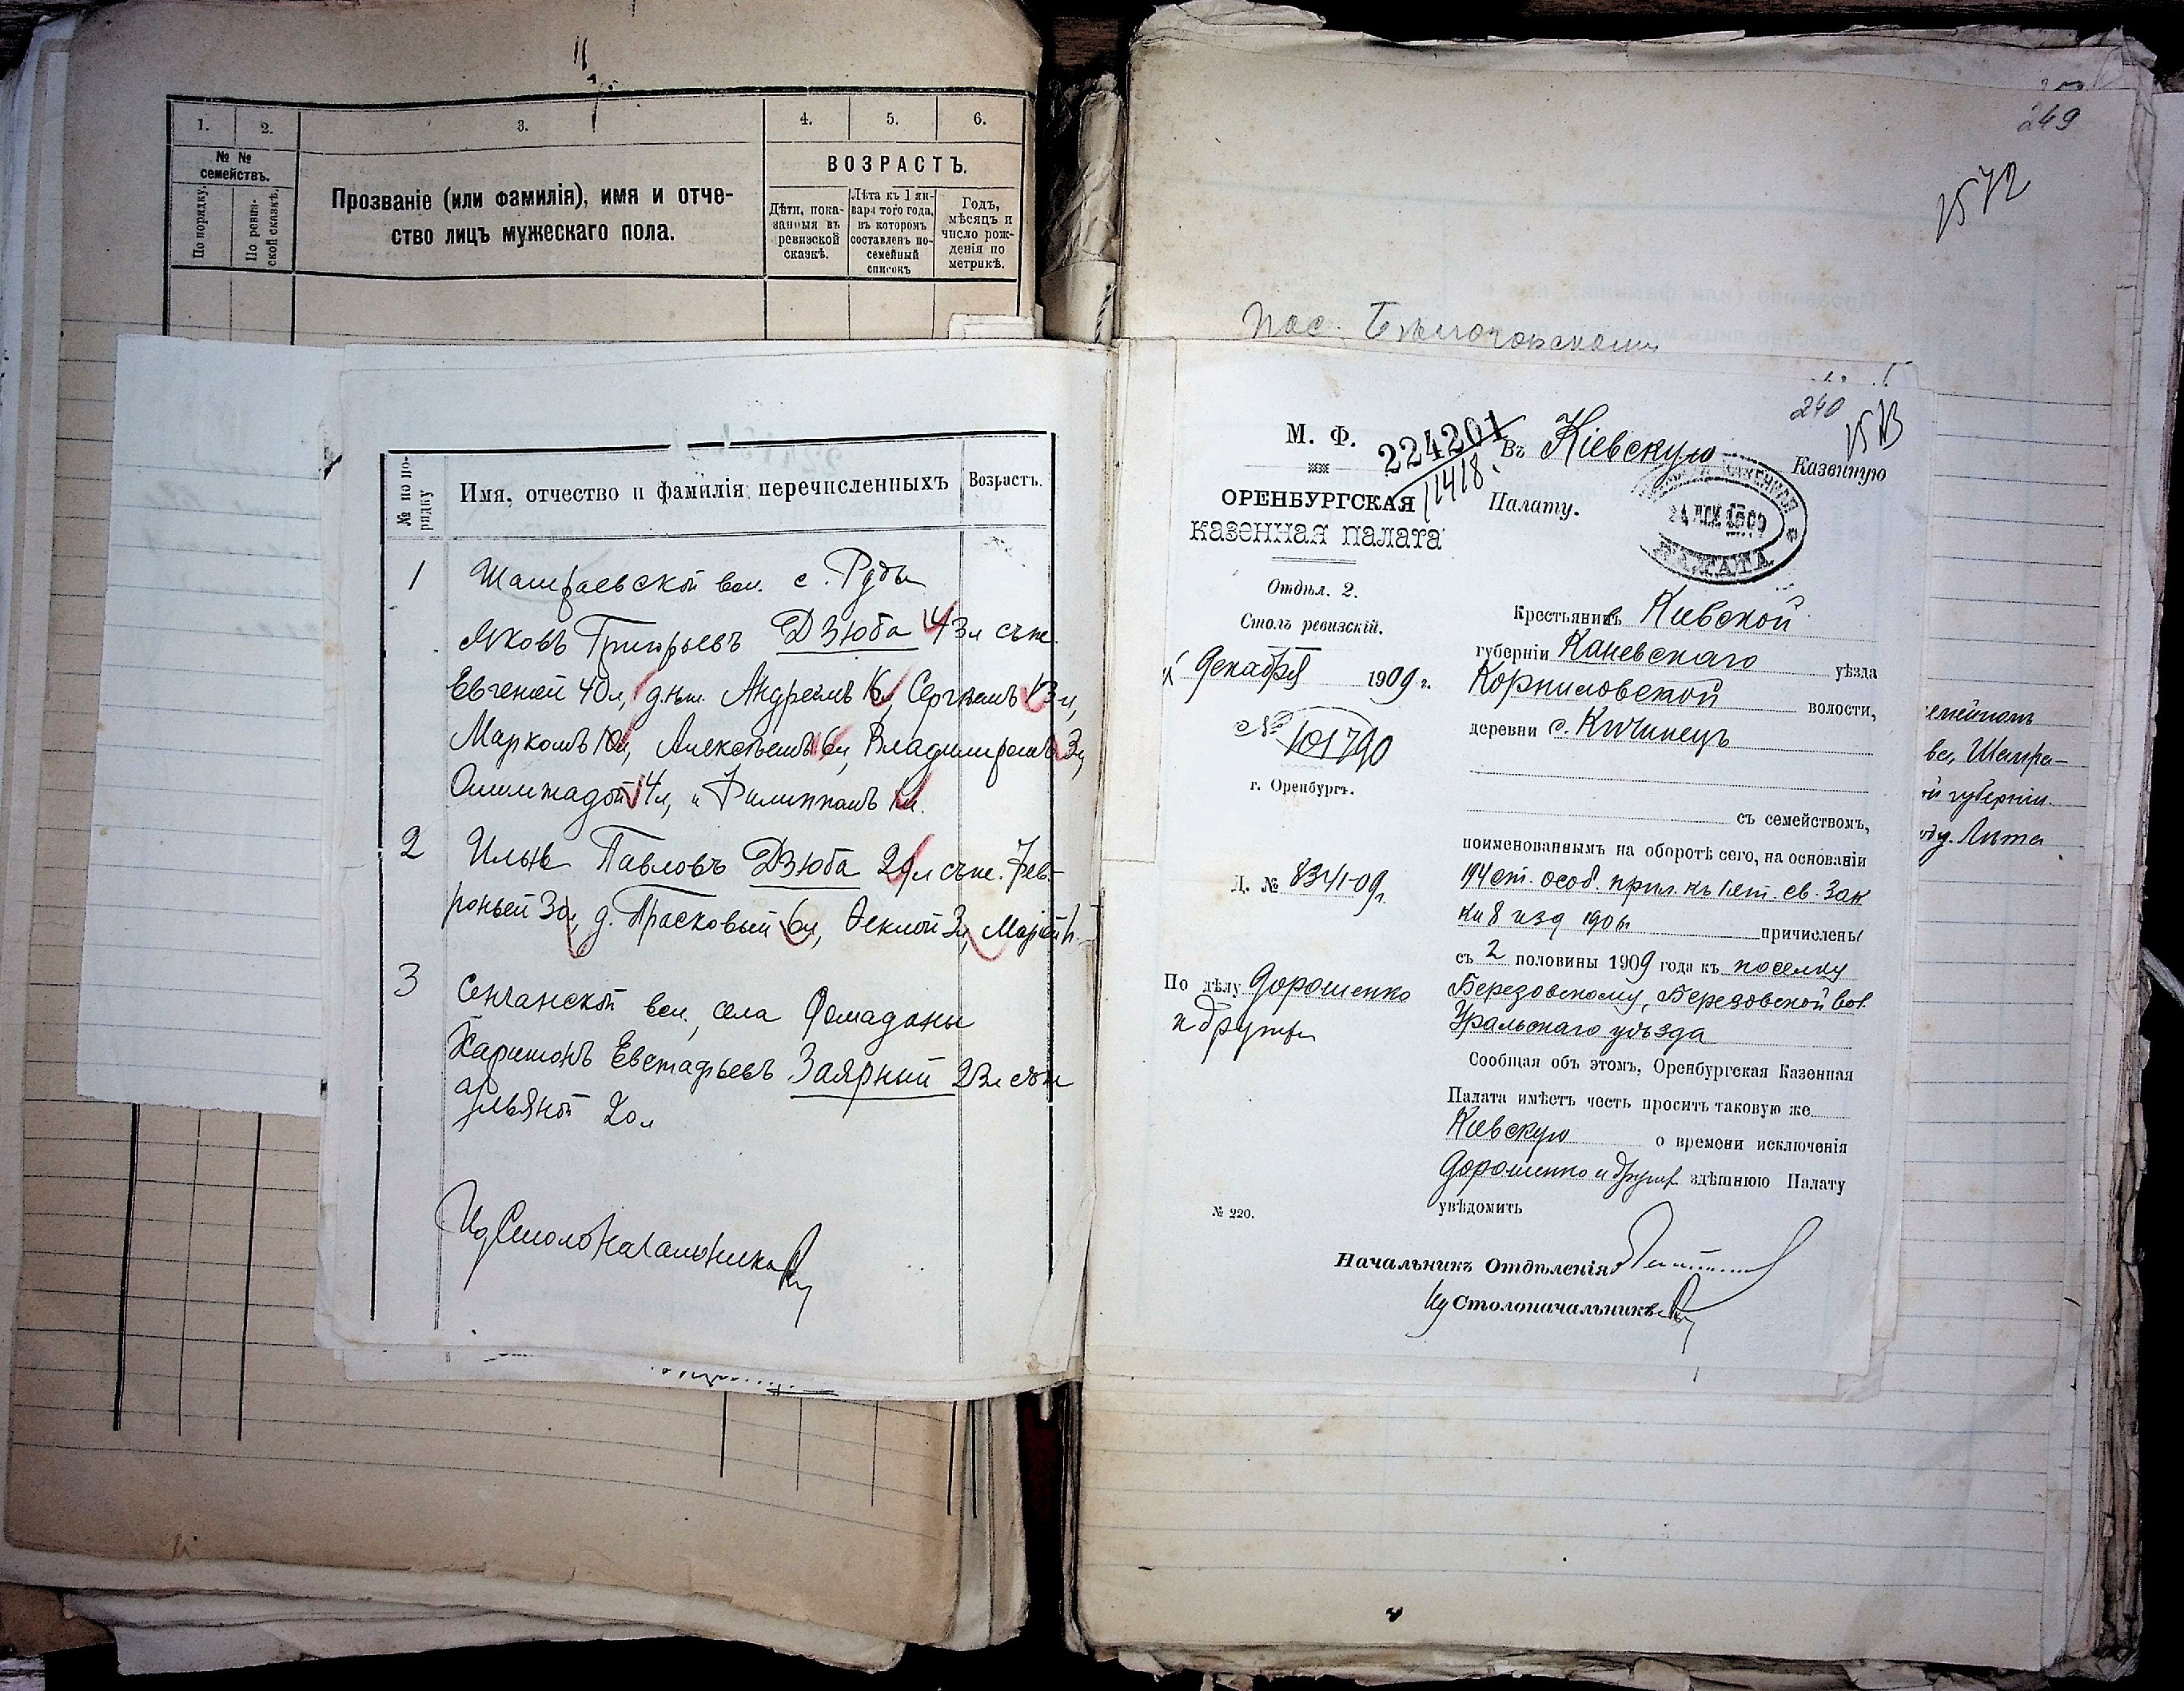 1. 2. 3. 4. 5. 6.
№ № семействъ.
По порядку.
По ревиз-
ской сказкѣ.
Прозваніе (или фамилія), имя и отче-
ство лицъ мужескаго пола.
ВОЗРАСТЪ.
Дѣти, пока-
занныя въ
ревизской
сказкѣ.
Лѣта къ 1 ян-
варя того года,
въ которомъ
составленъ по-
семейный
списокъ
Годъ,
мѣсяцъ и
число рож-
денія по
метрикѣ.
№ по по-
рядку
Имя, отчество и фамилія перечисленныхъ
Возрастъ.
1 Шамраевской вол. с. Руды
Яковъ Григорьевъ Дзюба 43 л съ же.
Евгеніей 40 л, дѣт. Андреемъ 16 л, Сергѣемъ 13 л,
Маркомъ 10 л, Алексѣемъ 6 л, Владимиромъ 3 л,
14 л, и Филиппомъ
2 Илья Павловъ Дзюба 29 л съ же. Фев-
роньей 30 л, д. Прасковьей 6 л, Феклой 3 л, Маріей
3 Сенчанской вол., села
Харитонъ Евстафьевъ Заярный 23 л съ же
Ульяной 20 л
Ид Столоначальника
249
1572
пос.
240
1513
М. Ф.
224201
11418
ОРЕНБУРГСКАЯ
КАЗЕННАЯ ПАЛАТА
Отдѣл. 2.
Столъ ревизскій.
Декабря 1909 г.
№ 101790
г. Оренбургъ.
Д. № 8341-09 г.
По дѣлу Дорошенко
и други
№ 220.
Въ Кіевскую Казенную
Палату.
КАЗЕННАЯ
ПАЛАТА
Крестьянинъ Кіевской
губерніи Каневскаго уѣзда
Корниловской волости,
деревни с. Кичинецъ
съ семействомъ,
поименованнымъ на оборотѣ сего, на основаніи
194 ст. особ. прил. къ I т. св. Зак
кн 8 изд 1906 причислены
съ 2 половины 1909 года къ поселку
Березовскому, Березовской вол.
Уральскаго уѣзда
Сообщая объ этомъ, Оренбургская Казенная
Палата имѣетъ честь просить таковую же
Кіевскую о времени исключенія
Дорошенко и друг здѣшнюю Палату
увѣдомить
Начальникъ Отдѣленія
Ид Столоначальника
ва, Шамра-
й губерніи.
оду. Лѣта